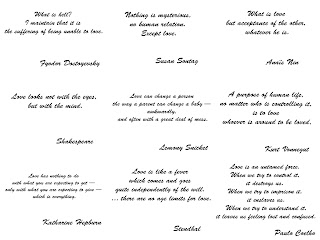 What is hell?
I maintain that it is
the suffering of being unable to love.
Fyodor Dostoyevsky
Nothing is mysterious,
no human relation.
Except love.
Susan Sontag
What is love
but acceptance of the other,
whatever he is.
Anaïs Nin
Love looks not with the eyes,
but with the mind.
Shakespeare
Love can change a person
the way a parent can change a baby —
awkwardly,
and often with a great deal of mess.
Lemony Snicket
A purpose of human life,
no matter who is controlling it,
is to love
whoever is around to be loved.
Kurt Vonnegut
Love has nothing to do
with what you are expecting to get —
only with what you are expecting to give —
which is everything.
Katharine Hepburn
Love is like a fever
which comes and goes
quite independently of the will.
... there are no age limits for love.
Stendhal
Love is an untamed force.
When we try to control it,
it destroys us.
When we try to imprison it,
it enslaves us.
When we try to understand it,
it leaves us feeling lost and confused.
Paulo Coelho